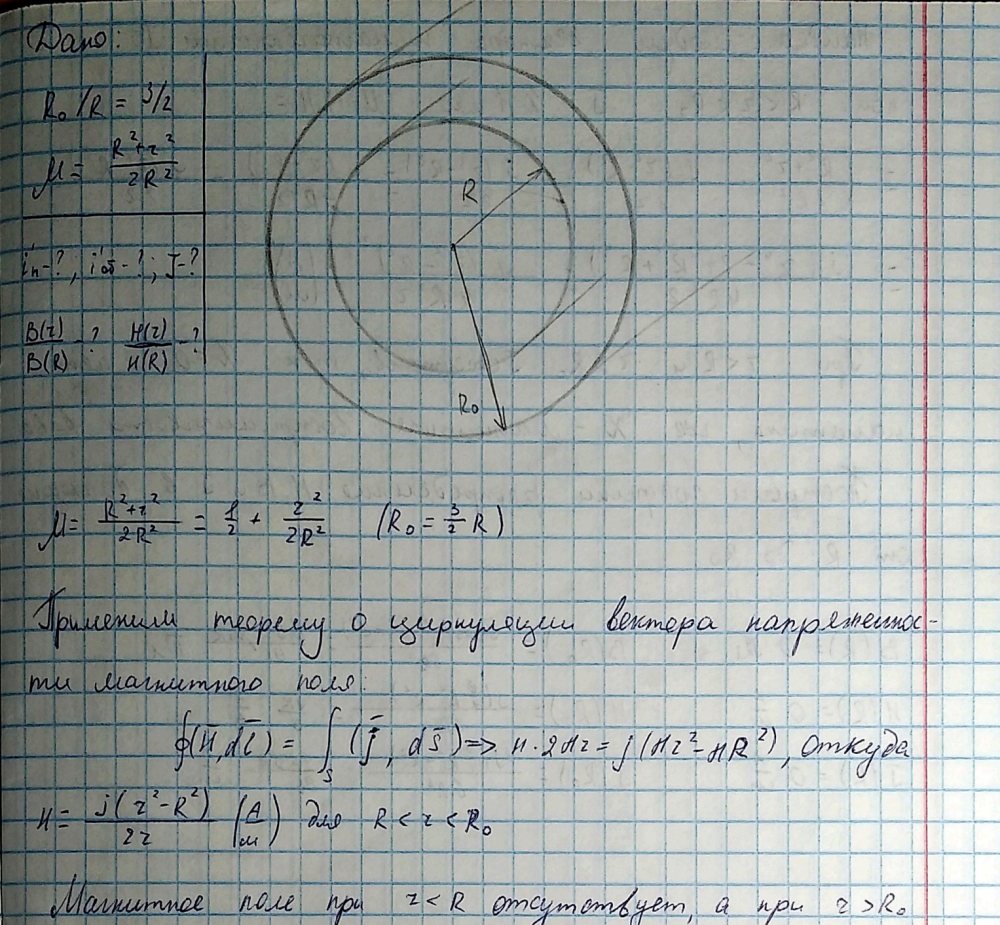 Дано:
R₀/R = 3/2
μ = (R²+r²)/(2R²)
i'п-?; i'об-?; J-?
B(r)/B(R) - ? H(r)/H(R) - ?
R
R₀
μ = (R²+r²)/(2R²) = 1/2 + r²/(2R²) (R₀ = 3/2 R)
Применим теорему о циркуляции вектора напряженнос-
ти магнитного поля:
∮(H̄, dl̄) = ∫_S (j̄, ds̄) => H·2πr = j(πr²-πR²), откуда
H = j(r²-R²)/(2r) (А/м) для R < r < R₀
Магнитное поле при r < R отсутствует, а при r > R₀